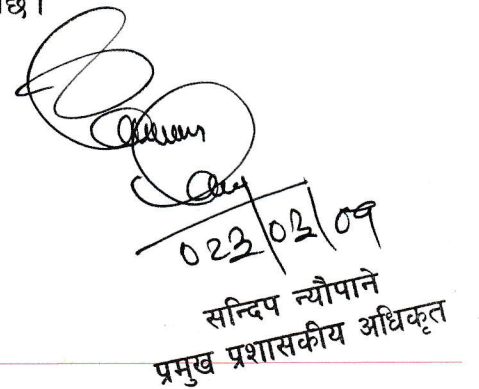 छ।
०८३/०३/०१
सन्दिप न्यौपाने
प्रमुख प्रशासकीय अधिकृत